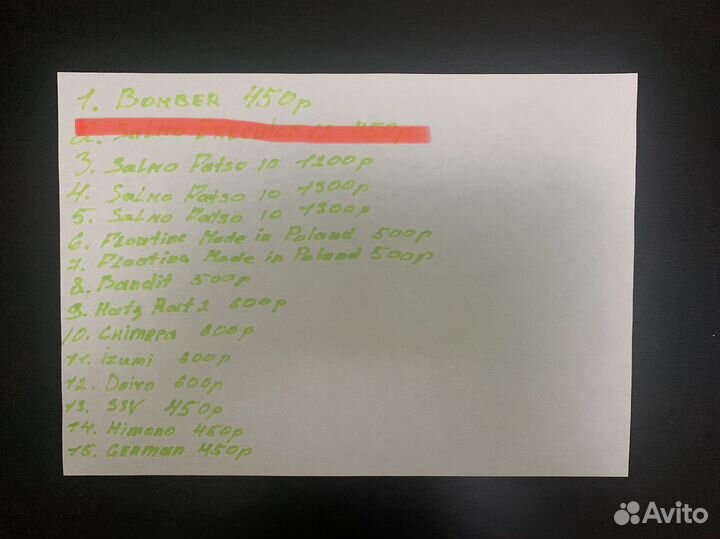 1. BOMBER 450р
2. Salmo Executor 12 450р
3. Salmo Fatso 10 1200р
4. Salmo Fatso 10 1300р
5. Salmo Fatso 10 1300р
6. Floating Made in Poland 500р
7. Floating Made in Poland 500р
8. Bandit 500р
9. Hatz Rat 2 600р
10. CHimera 600р
11. izumi 600р
12. Daivo 600р
13. SSV 450р
14. Himono 450р
15. GERMAN 450р
Avito